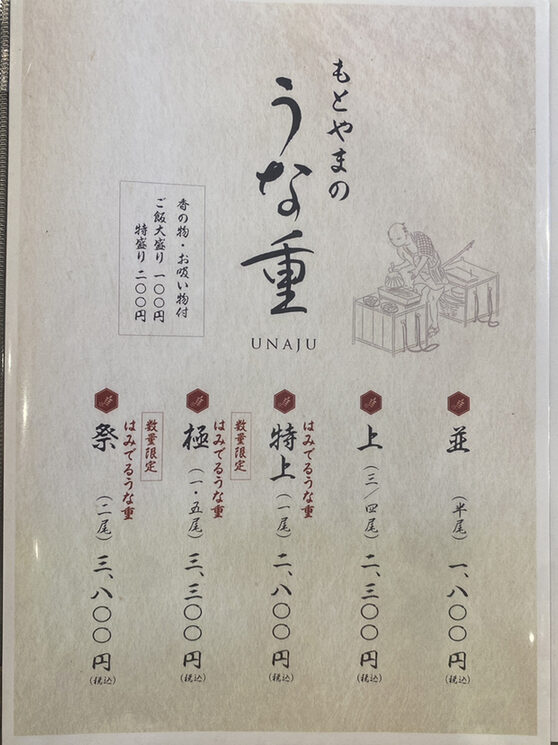 もとやまの
うな重
UNAJU
香の物・お吸い物付
ご飯大盛り 一〇〇円
特盛り 二〇〇円
並 (半尾) 一、八〇〇円(税込)
上 (三/四尾) 二、三〇〇円(税込)
はみでるうな重
特上 (一尾) 二、八〇〇円(税込)
数量限定
はみでるうな重
極 (一・五尾) 三、三〇〇円(税込)
数量限定
はみでるうな重
祭 (二尾) 三、八〇〇円(税込)